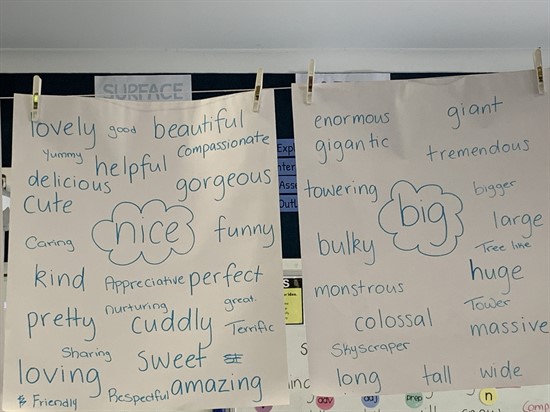 SURFACE
lovely good beautiful
Yummy helpful Compassionate
delicious gorgeous
cute
nice funny
Caring
kind Appreciative perfect
nurturing great.
pretty cuddly Terrific
Sharing sweet
loving amazing
Friendly Respectful
enormous giant
gigantic tremendous
towering bigger
big large
bulky Tree like
huge
monstrous Tower
colossal massive
Skyscraper
long tall wide
Expl
Asse
Outl
adv adj prep n